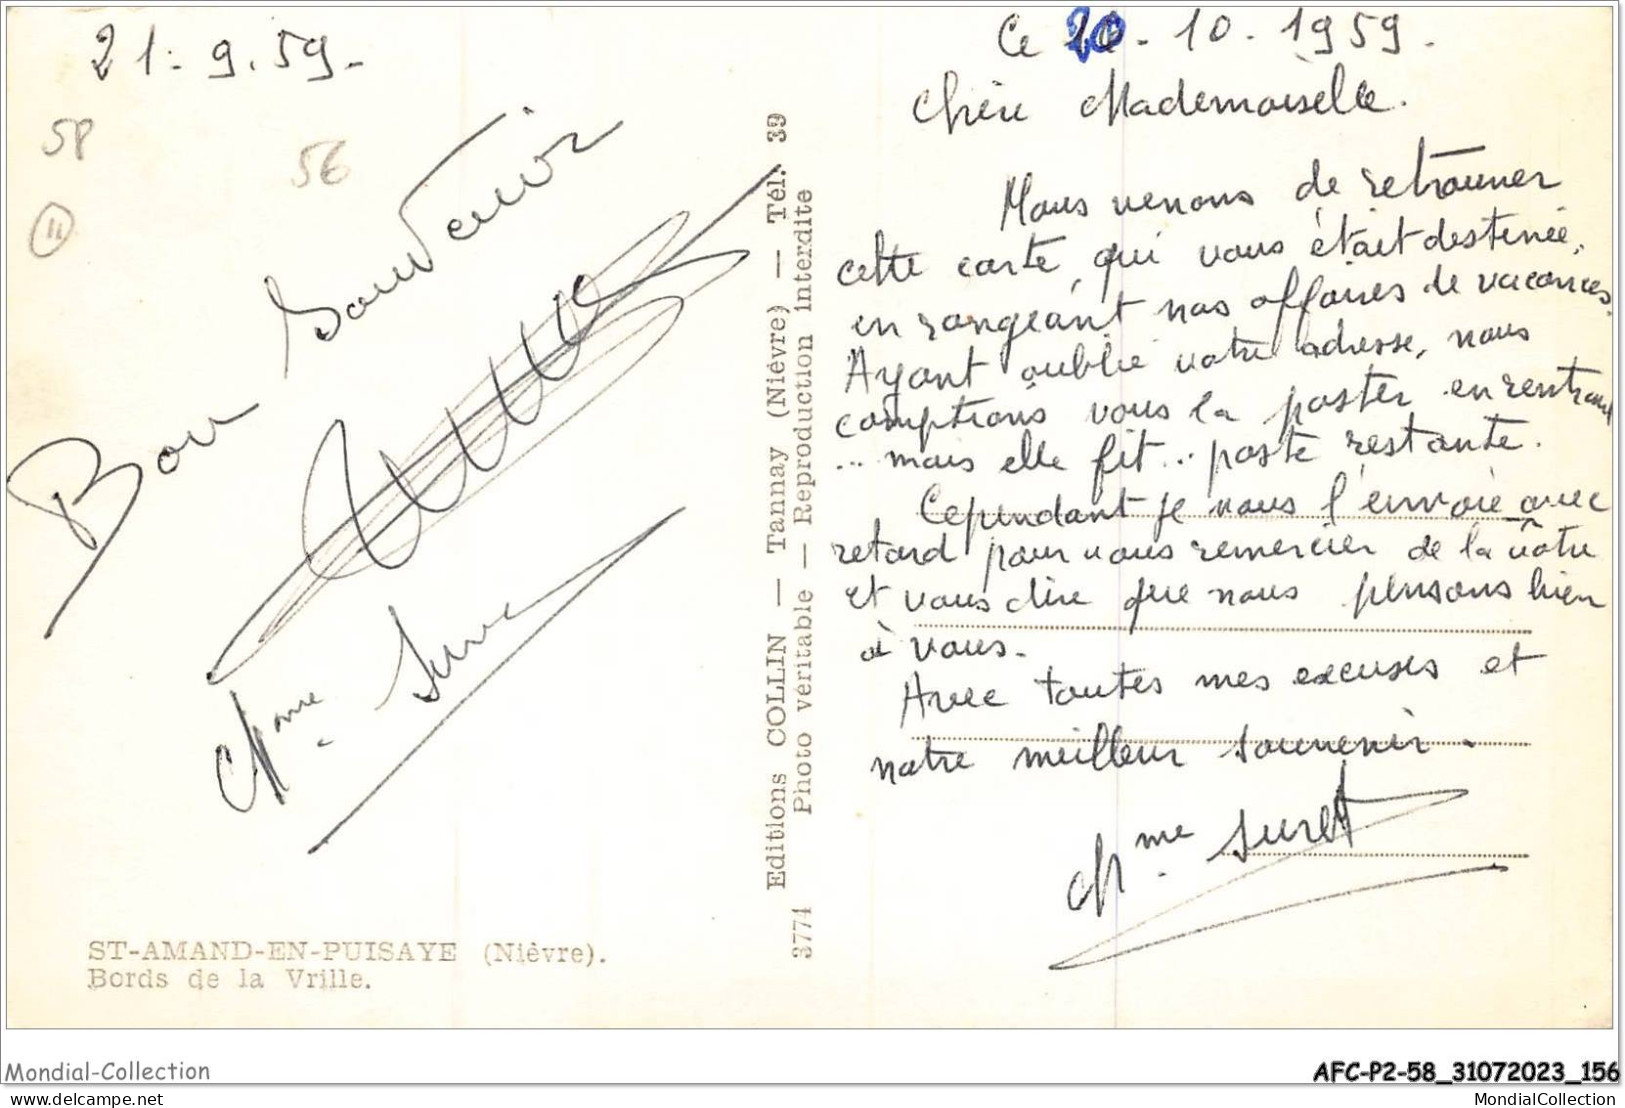 21.9.59.
58
56
11
Bon Souvenir
Mme Suret
ST-AMAND-EN-PUISAYE (Nièvre).
Bords de la Vrille.
3774 Editions COLLIN — Tannay (Nièvre) — Tél. 39
Photo véritable — Reproduction interdite
Ce 20.10.1959.
Chère Mademoiselle.
Nous venons de retrouver
cette carte, qui vous était destinée,
en rangeant nos affaires de vacances.
Ayant oublié votre adresse, nous
comptions vous la poster en rentrant
... mais elle fit... poste restante.
Cependant je vous l'envoie avec
retard pour vous remercier de la vôtre
et vous dire que nous pensons bien
à vous.
Avec toutes mes excuses et
notre meilleur souvenir.
Mme Suret
Mondial-Collection
AFC-P2-58_31072023_156
delcampe.net
MondialCollection